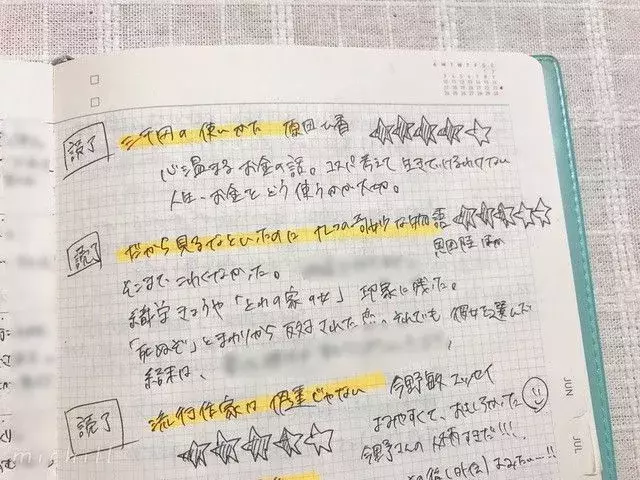 読了 三千円の使いかた 原田ひ香
心温まるお金の話。コスパ考えて生きていけるわけでない
人生、お金をどう使うかが大切。
読了 だから見るなといったのに 九つの奇妙な物語
恩田陸 ほか
そこまでこわくなかった。
織守きょうや「とわの家の女」印象に残った。
「死ぬぞ」とまわりから反対された恋、それでも彼女を選んだ
結末は、
読了 流行作家は伊達じゃない 今野敏 エッセイ
よみやすくて、おもしろかった
今野さんの
JUN
JUL